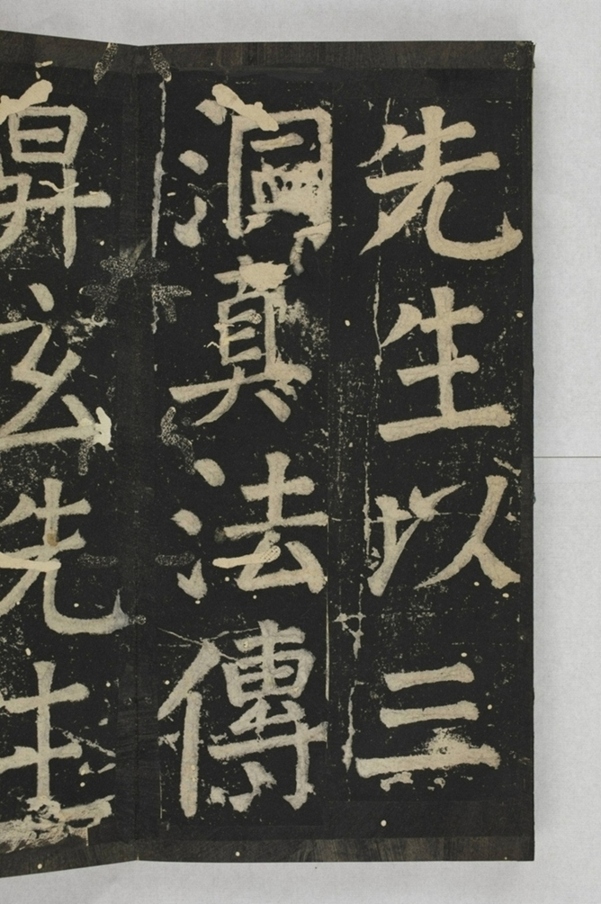 先生以三
洞真法傳
昇玄先生